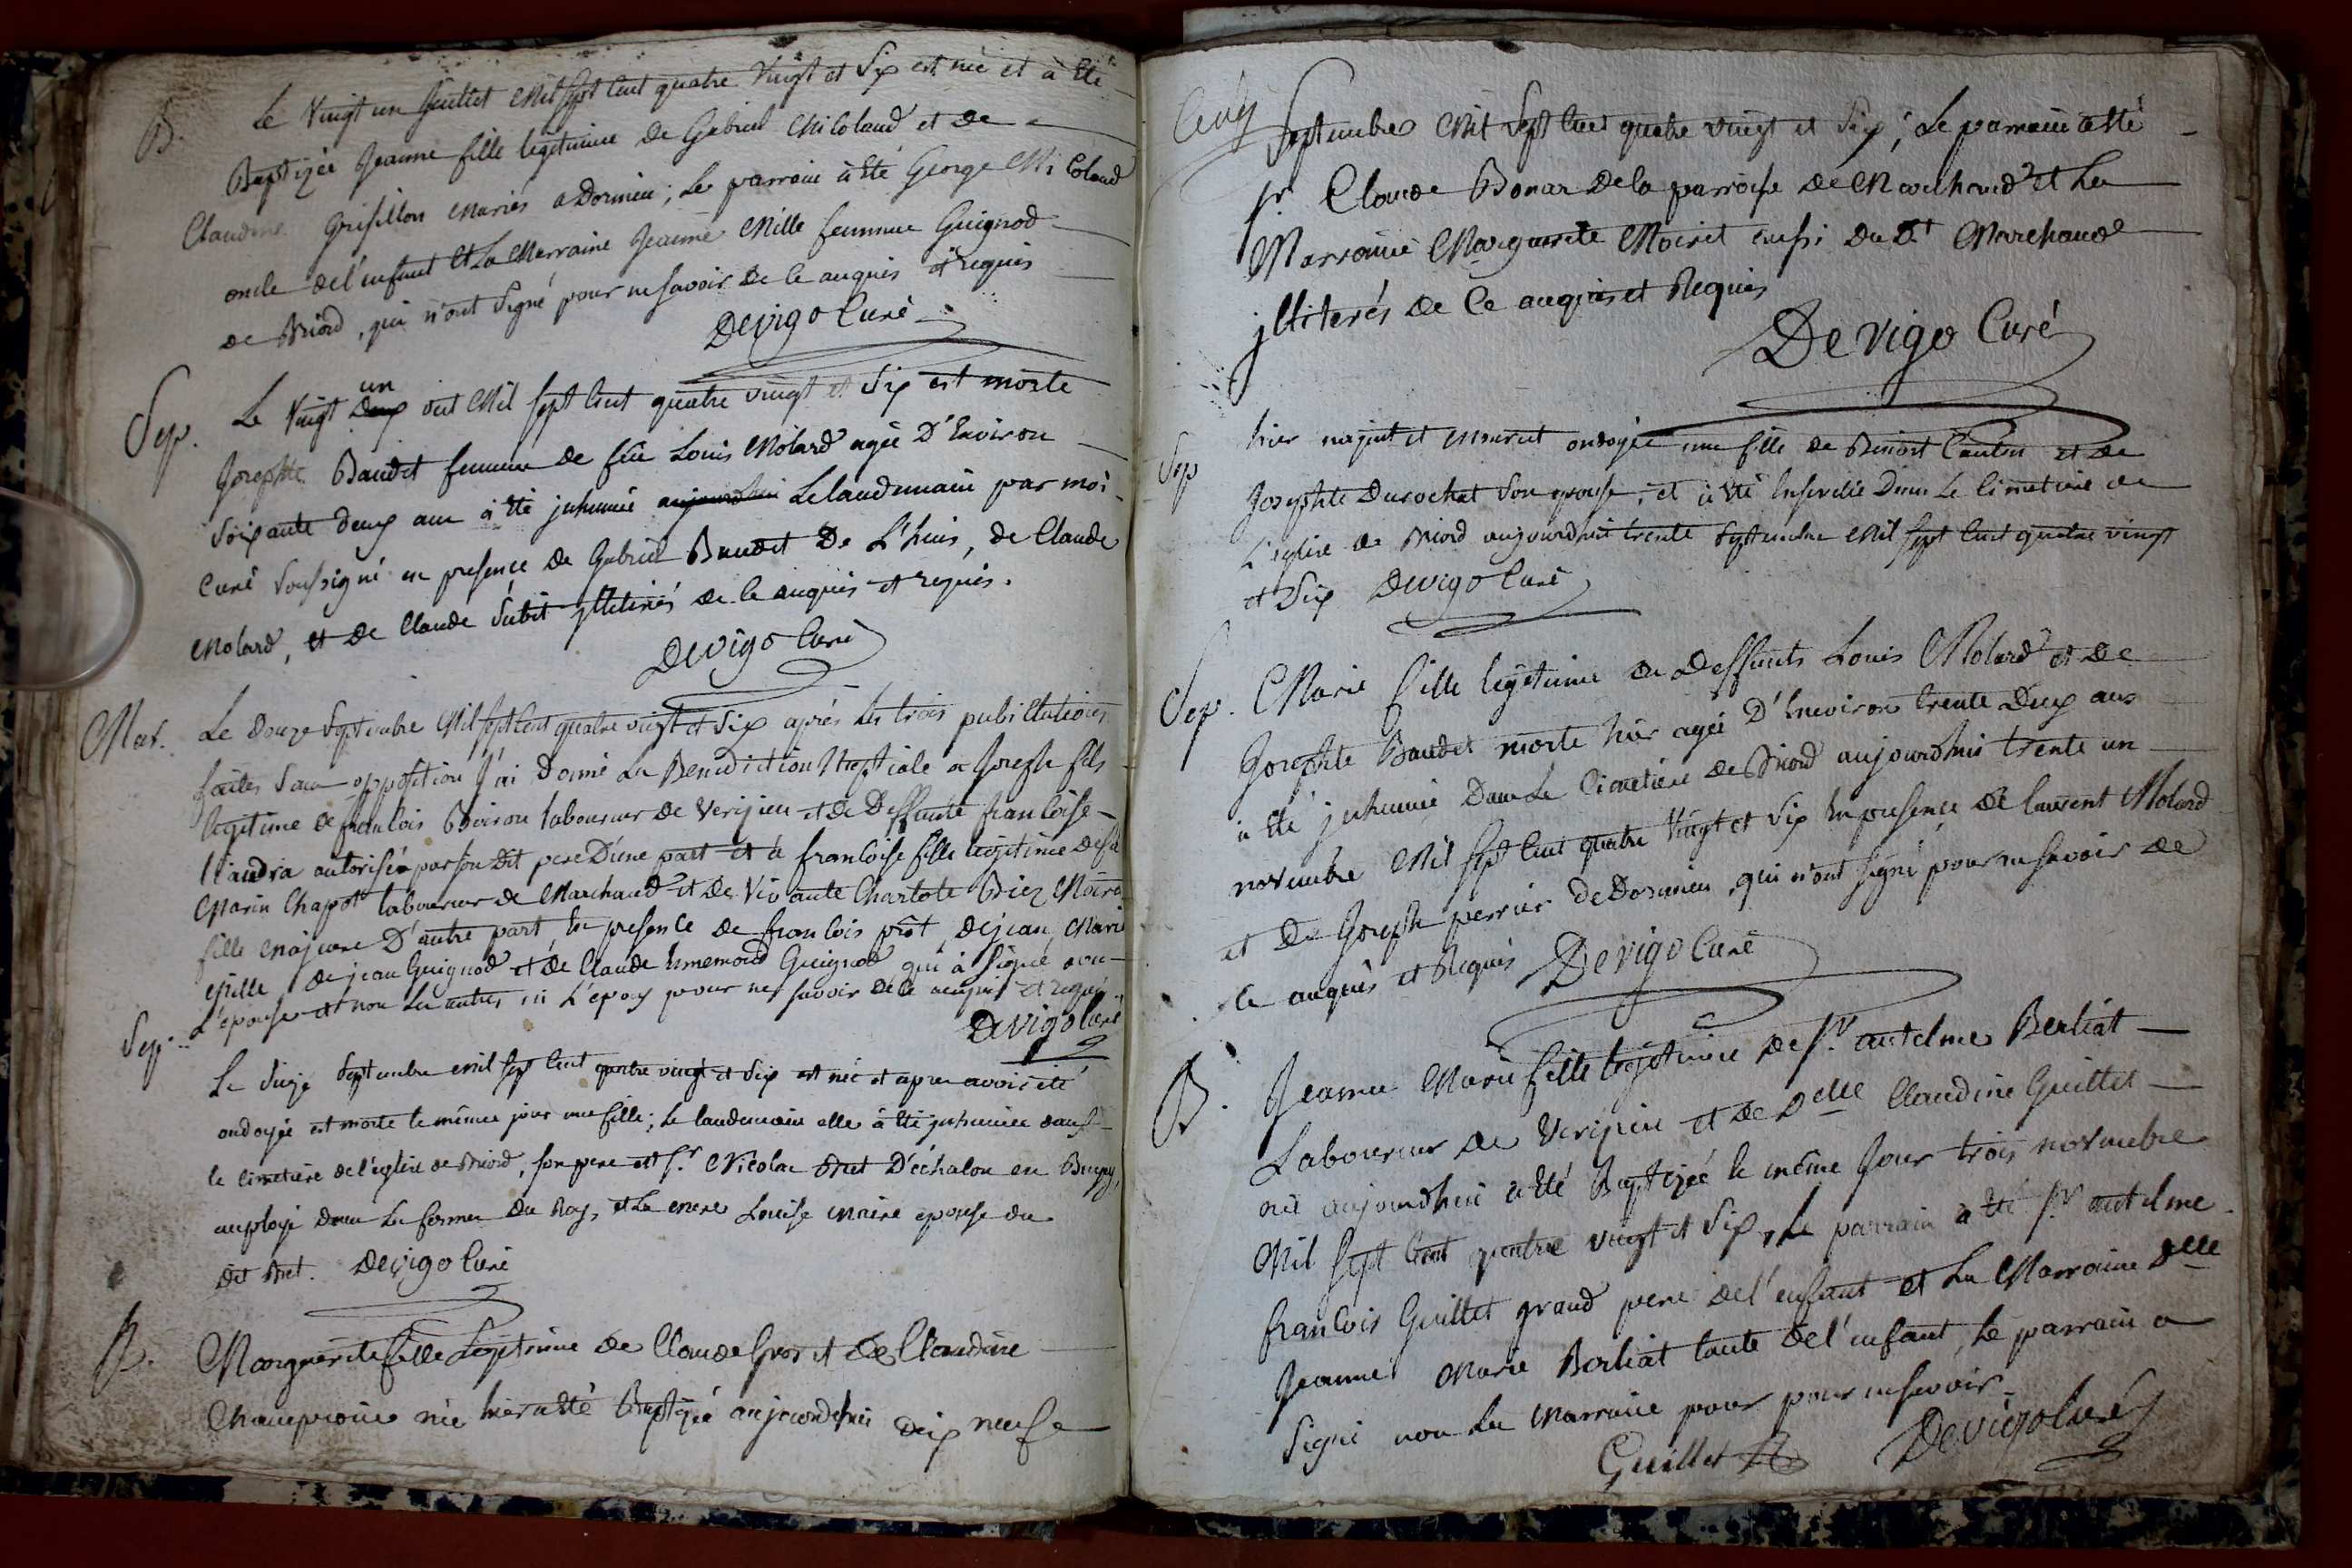 B. Le Vingt un Juillet Mil sept Cent quatre Vingt et Six est née et à Eté
Baptizée Jeanne fille legitime De Gabriel Micoland et De
Claudine Grisillon Mariés a Dornieu; Le parrain à Eté George Micoland
oncle de l'enfant et La Marraine Jeanne Mille femme Guignod
de Briord, qui n'ont Signé pour ne Savoir De Ce anquis et requis
Devigo Curé
Sep. Le Vingt Deux un out Mil Sept Cent quatre vingt et Six est morte
Josephte Baudet femme de feu Louis Molard agée D'Environ
Soixante deux ans à Eté inhumée aujourdhui Le landemain par moi
Curé Soussigné en presence de Gabriel Baudet De L'huis, de Claude
Molard, et De Claude Subit jlliterés de Ce anquis et requis.
Devigo Curé
Mar. Le Douze Septembre Mil Sept Cent quatre vingt et Six après les trois publications
faites Sans opposition J'ai Donné La Benediction Nuptiale a Joseph fils
legitime de francois Boiron laboureur de Verizieu et de Deffunte francoise
autorisée par son Dit pere D'une part et à francoise fille legitime de feu
Marin Chapot laboureur de Marchand et de Vivante Charlote
fille Majeure D'autre part En presence de francois prôt, De jean Marie
Mille, de jean Guignod et de Claude Ennemond Guignod qui à Signé avec
L'epouse et non Les autres ni L'epoux pour ne savoir de Ce anquis et requis
Devigo Curé
Sep. Le Seize Septembre mil Sept Cent quatre vingt et Six est née et apres avoir été
ondoyée est morte le même jour une fille; Le landemain elle à Eté inhumée dans
le cimetiere de l'eglise de Briord, son pere est Sr. Nicolas Bret D'échalon en Bugey,
employé dans Les fermes Du Roy, et La mere Louise Maire epouse du
Dit Bret. Devigo Curé
B. Marguerite fille Legitime de Claude Gros et de Claudine
Champione née hier a Eté Baptizée aujourdhui dix neuf
Septembre Mil Sept Cent quatre vingt et Six; Le parrain a Eté
Sr. Claude Bonar De la parroise de Marchand et La
Marraine Marguerite Moiret aussi Du Dt Marchand
jlliterés de Ce anquis et Requis
De Vigo Curé
Sep hier naquit et mourut ondoyée une fille de Benoit Cantin et de
Josephte Durochat Son epouse, et à Eté Ensevelie Dans Le Cimetiere de
L'eglise de Briord aujourdhui trente Septembre Mil Sept Cent quatre vingt
et Six Devigo Curé
Sep. Marie fille legitime de Deffunts Louis Molard et De
Josephte Baudet morte hier agée D'Environ trente Deux ans
à Eté jnhumée Dans Le Cimetiere de Briord aujourdhui trente un
novembre Mil Sept Cent quatre Vingt et Six En presence de laurent Molard
et De Joseph perrier de Dornieu, qui n'ont signé pour ne Savoir de
Ce anquis et Requis De Vigo Curé
B. Jeanne Marie fille legitime de Sr. antelme Berliat
Laboureur de Verizieu et de Delle Claudine Guillet
née aujourdhui à Eté Baptizée le même Jour trois novembre
Mil Sept Cent quatre vingt et Six, Le parrain à Eté Sr antelme
francois Guillet grand pere de l'enfant et La Marraine Delle
Jeanne Marie Berliat tante de l'enfant, Le parrain a
Signé non La Marraine pour pour ne Savoir.
Guillet Devigo Curé